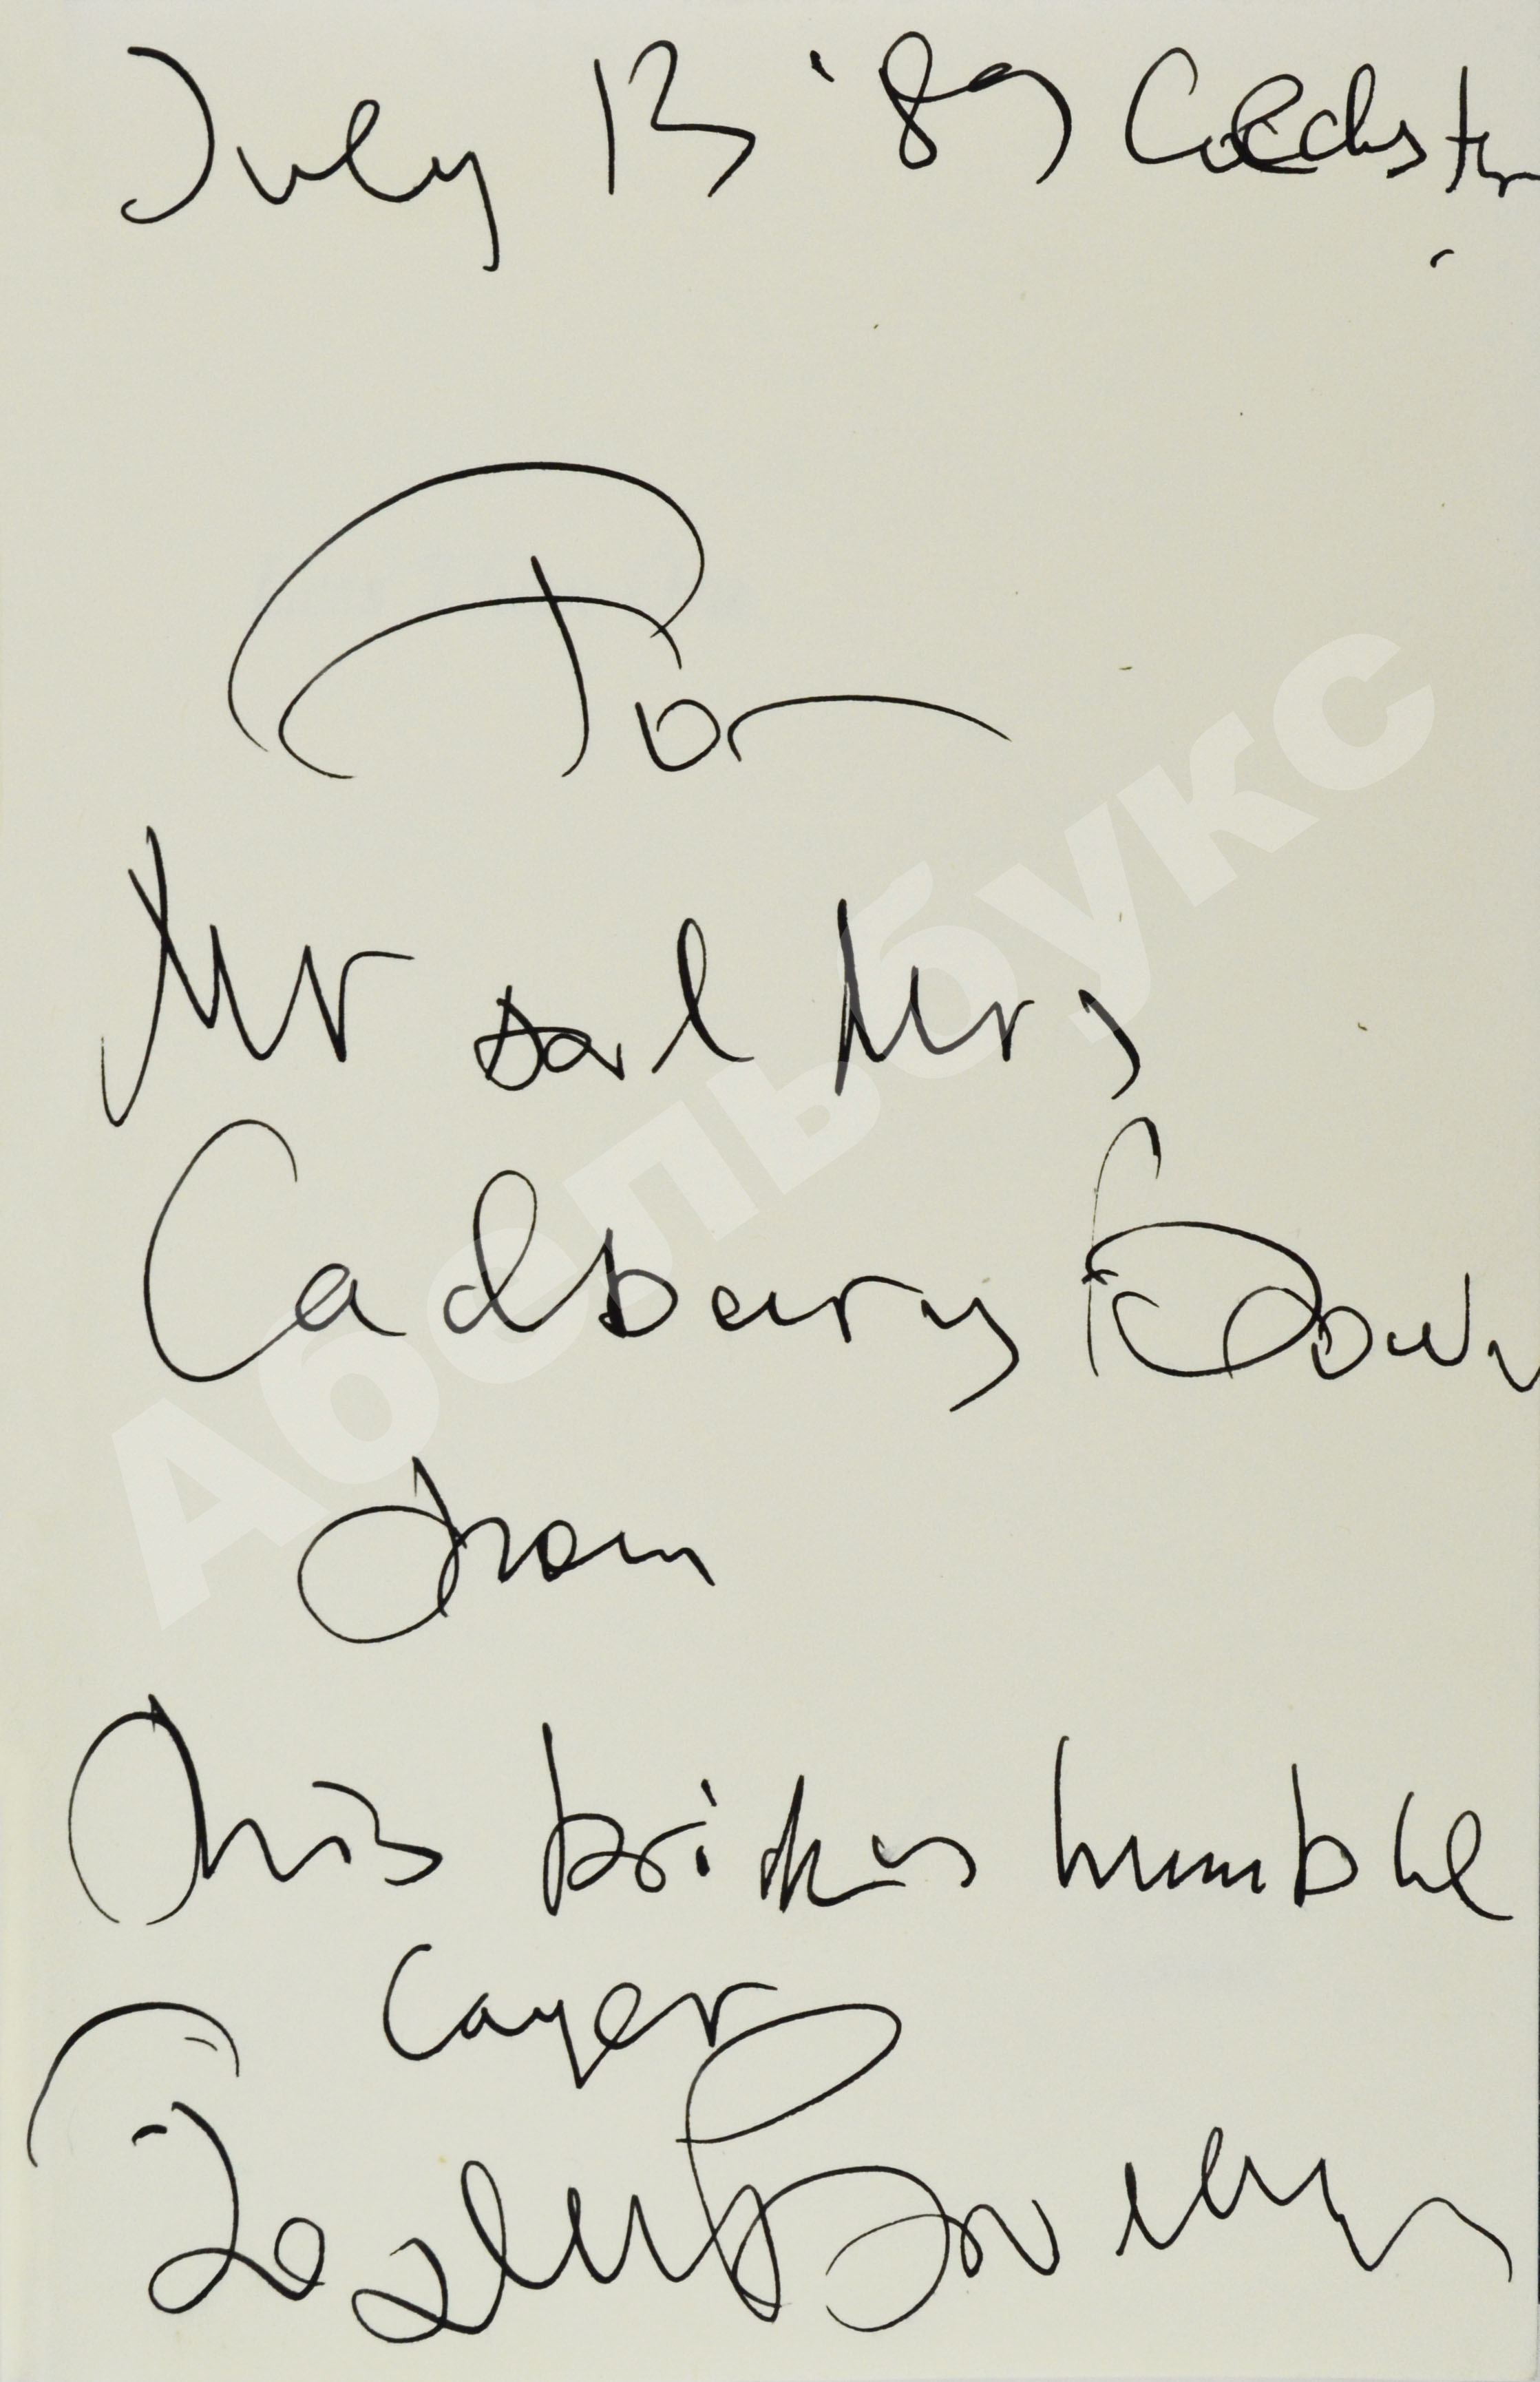 July 13 '89 Colchester
For
Mr and Mrs
Cadbury Brown
from
this brick's humble
layer
Joseph Brodsky
Абельбукс